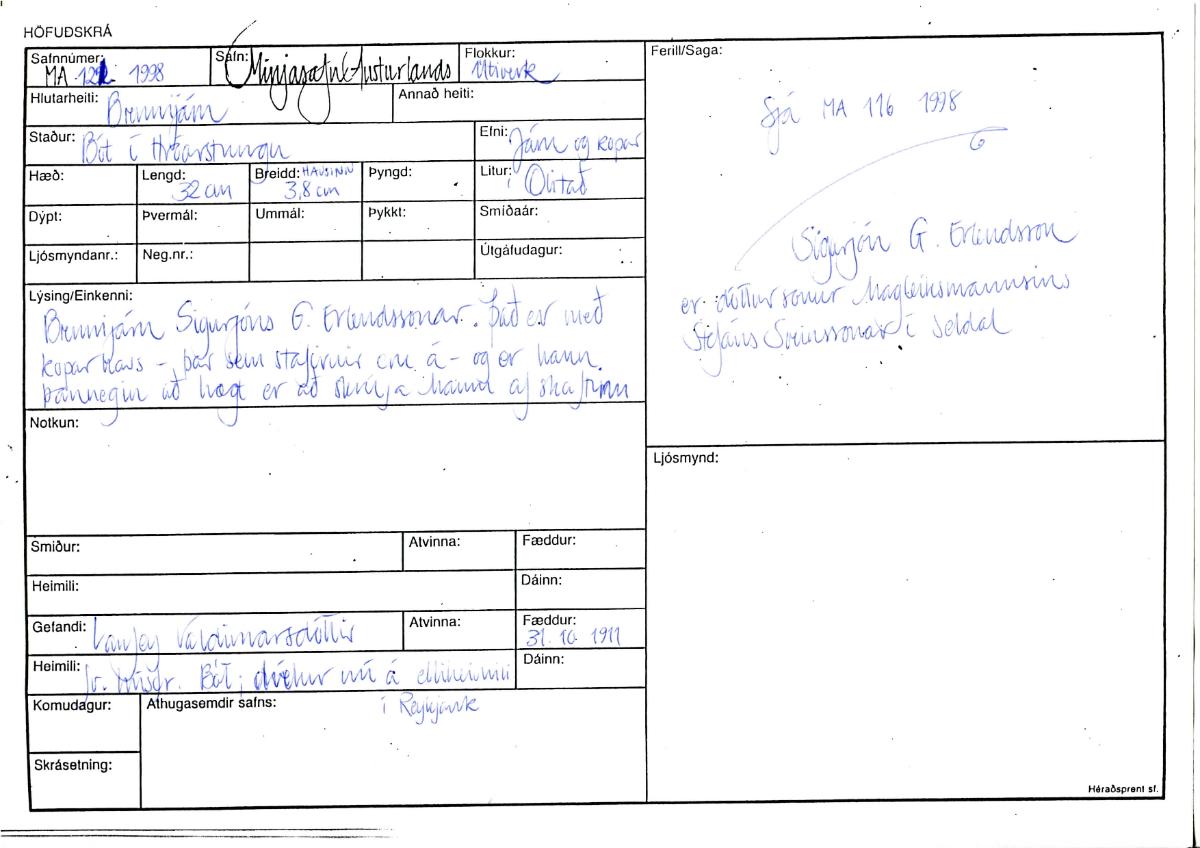 HÖFUÐSKRÁ
Safnnúmer: MA 122 1998
Safn: Minjasafn Austurlands
Flokkur: Útiverk
Hlutarheiti: Brennijárn
Annað heiti:
Staður: Bót í Hróarstungu
Efni: Járn og kopar
Hæð:
Lengd: 32 cm
Breidd: HAUSINN 3,8 cm
Þyngd:
Litur: Ólitað
Dýpt:
Þvermál:
Ummál:
Þykkt:
Smíðaár:
Ljósmyndanr.:
Neg.nr.:
Útgáfudagur:
Lýsing/Einkenni:
Brennijárn Sigurjóns G. Erlendssonar. Það er með
kopar haus -, þar sem stafirnir eru á - og er hann
þannegin að hægt er að skrúfa hann af skaftinu
Notkun:
Smiður:
Atvinna:
Fæddur:
Heimili:
Dáinn:
Gefandi: Laufey Valdimarsdóttir
Atvinna:
Fæddur: 31. 10 1911
Heimili: fv. húsfr. Bót; dvelur nú á elliheimili
í Reykjavík
Dáinn:
Komudagur:
Athugasemdir safns:
Skrásetning:
Ferill/Saga:
Sjá MA 116 1998
Sigurjón G. Erlendsson
er dóttursonur hagleiksmannsins
Stefáns Sveinssonar í Seldal
Ljósmynd:
Héraðsprent sf.